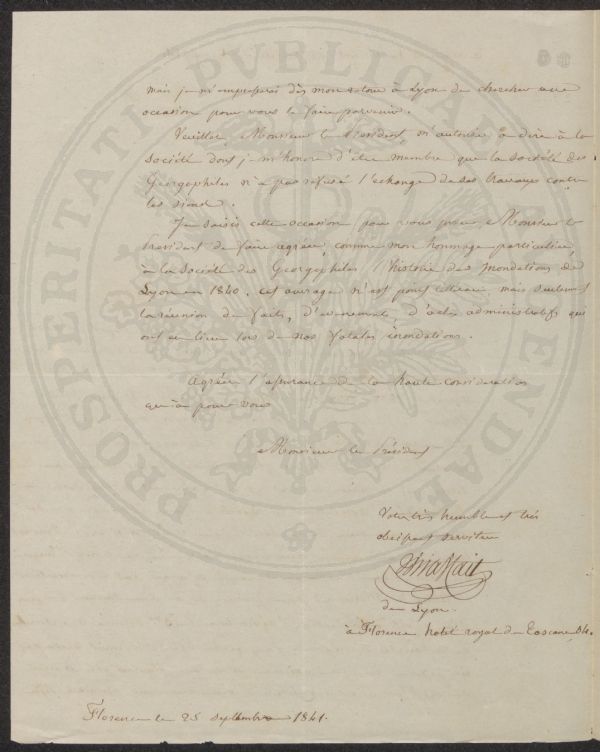 PROSPERITATI PVBLICAE AVGENDAE
mais je m'empresserai dès mon retour à Lyon de chercher une
occasion pour vous le faire parvenir.
Veuillez, Monsieur le Président, m'autoriser à dire à la
société dont je m'honore d'être membre que la société des
Georgophiles n'a pas refusé l'échange de ses travaux contre
les siens.
Je saisis cette occasion pour vous prier, Monsieur le
Président de faire agréer, comme mon hommage particulier,
à la Société des Georgophiles l'histoire des inondations de
Lyon en 1840. cet ouvrage n'est point mais seulement
la réunion de faits, d'evenements, d'actes administratifs qui
ont eu lieu lors de nos fatales inondations.
Agréez l'assurance de la haute consideration
que j'ai pour vous
Monsieur le Président
Votre très humble et très
obeissant serviteur
de Lyon.
à Florence hotel royal de Toscane
Florence le 25 septembre 1841.